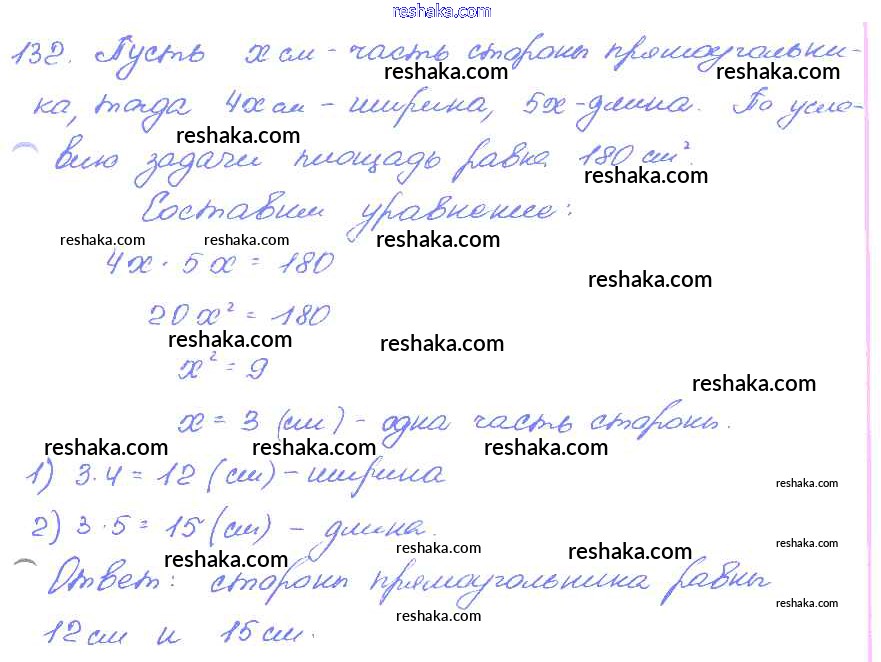 reshaka.com
132. Пусть x см - часть стороны прямоугольни-
reshaka.com reshaka.com
ка, тогда 4x см - ширина, 5x - длина. По усло-
reshaka.com
вию задачи площадь равна 180 см².
reshaka.com
Составим уравнение:
reshaka.com reshaka.com reshaka.com
4x · 5x = 180
reshaka.com
20x² = 180
reshaka.com reshaka.com
x² = 9
reshaka.com
x = 3 (см) - одна часть стороны.
reshaka.com reshaka.com reshaka.com
1) 3·4 = 12 (см) - ширина
reshaka.com
2) 3·5 = 15 (см) - длина.
reshaka.com reshaka.com reshaka.com reshaka.com
Ответ: стороны прямоугольника равны
reshaka.com reshaka.com
12 см и 15 см.